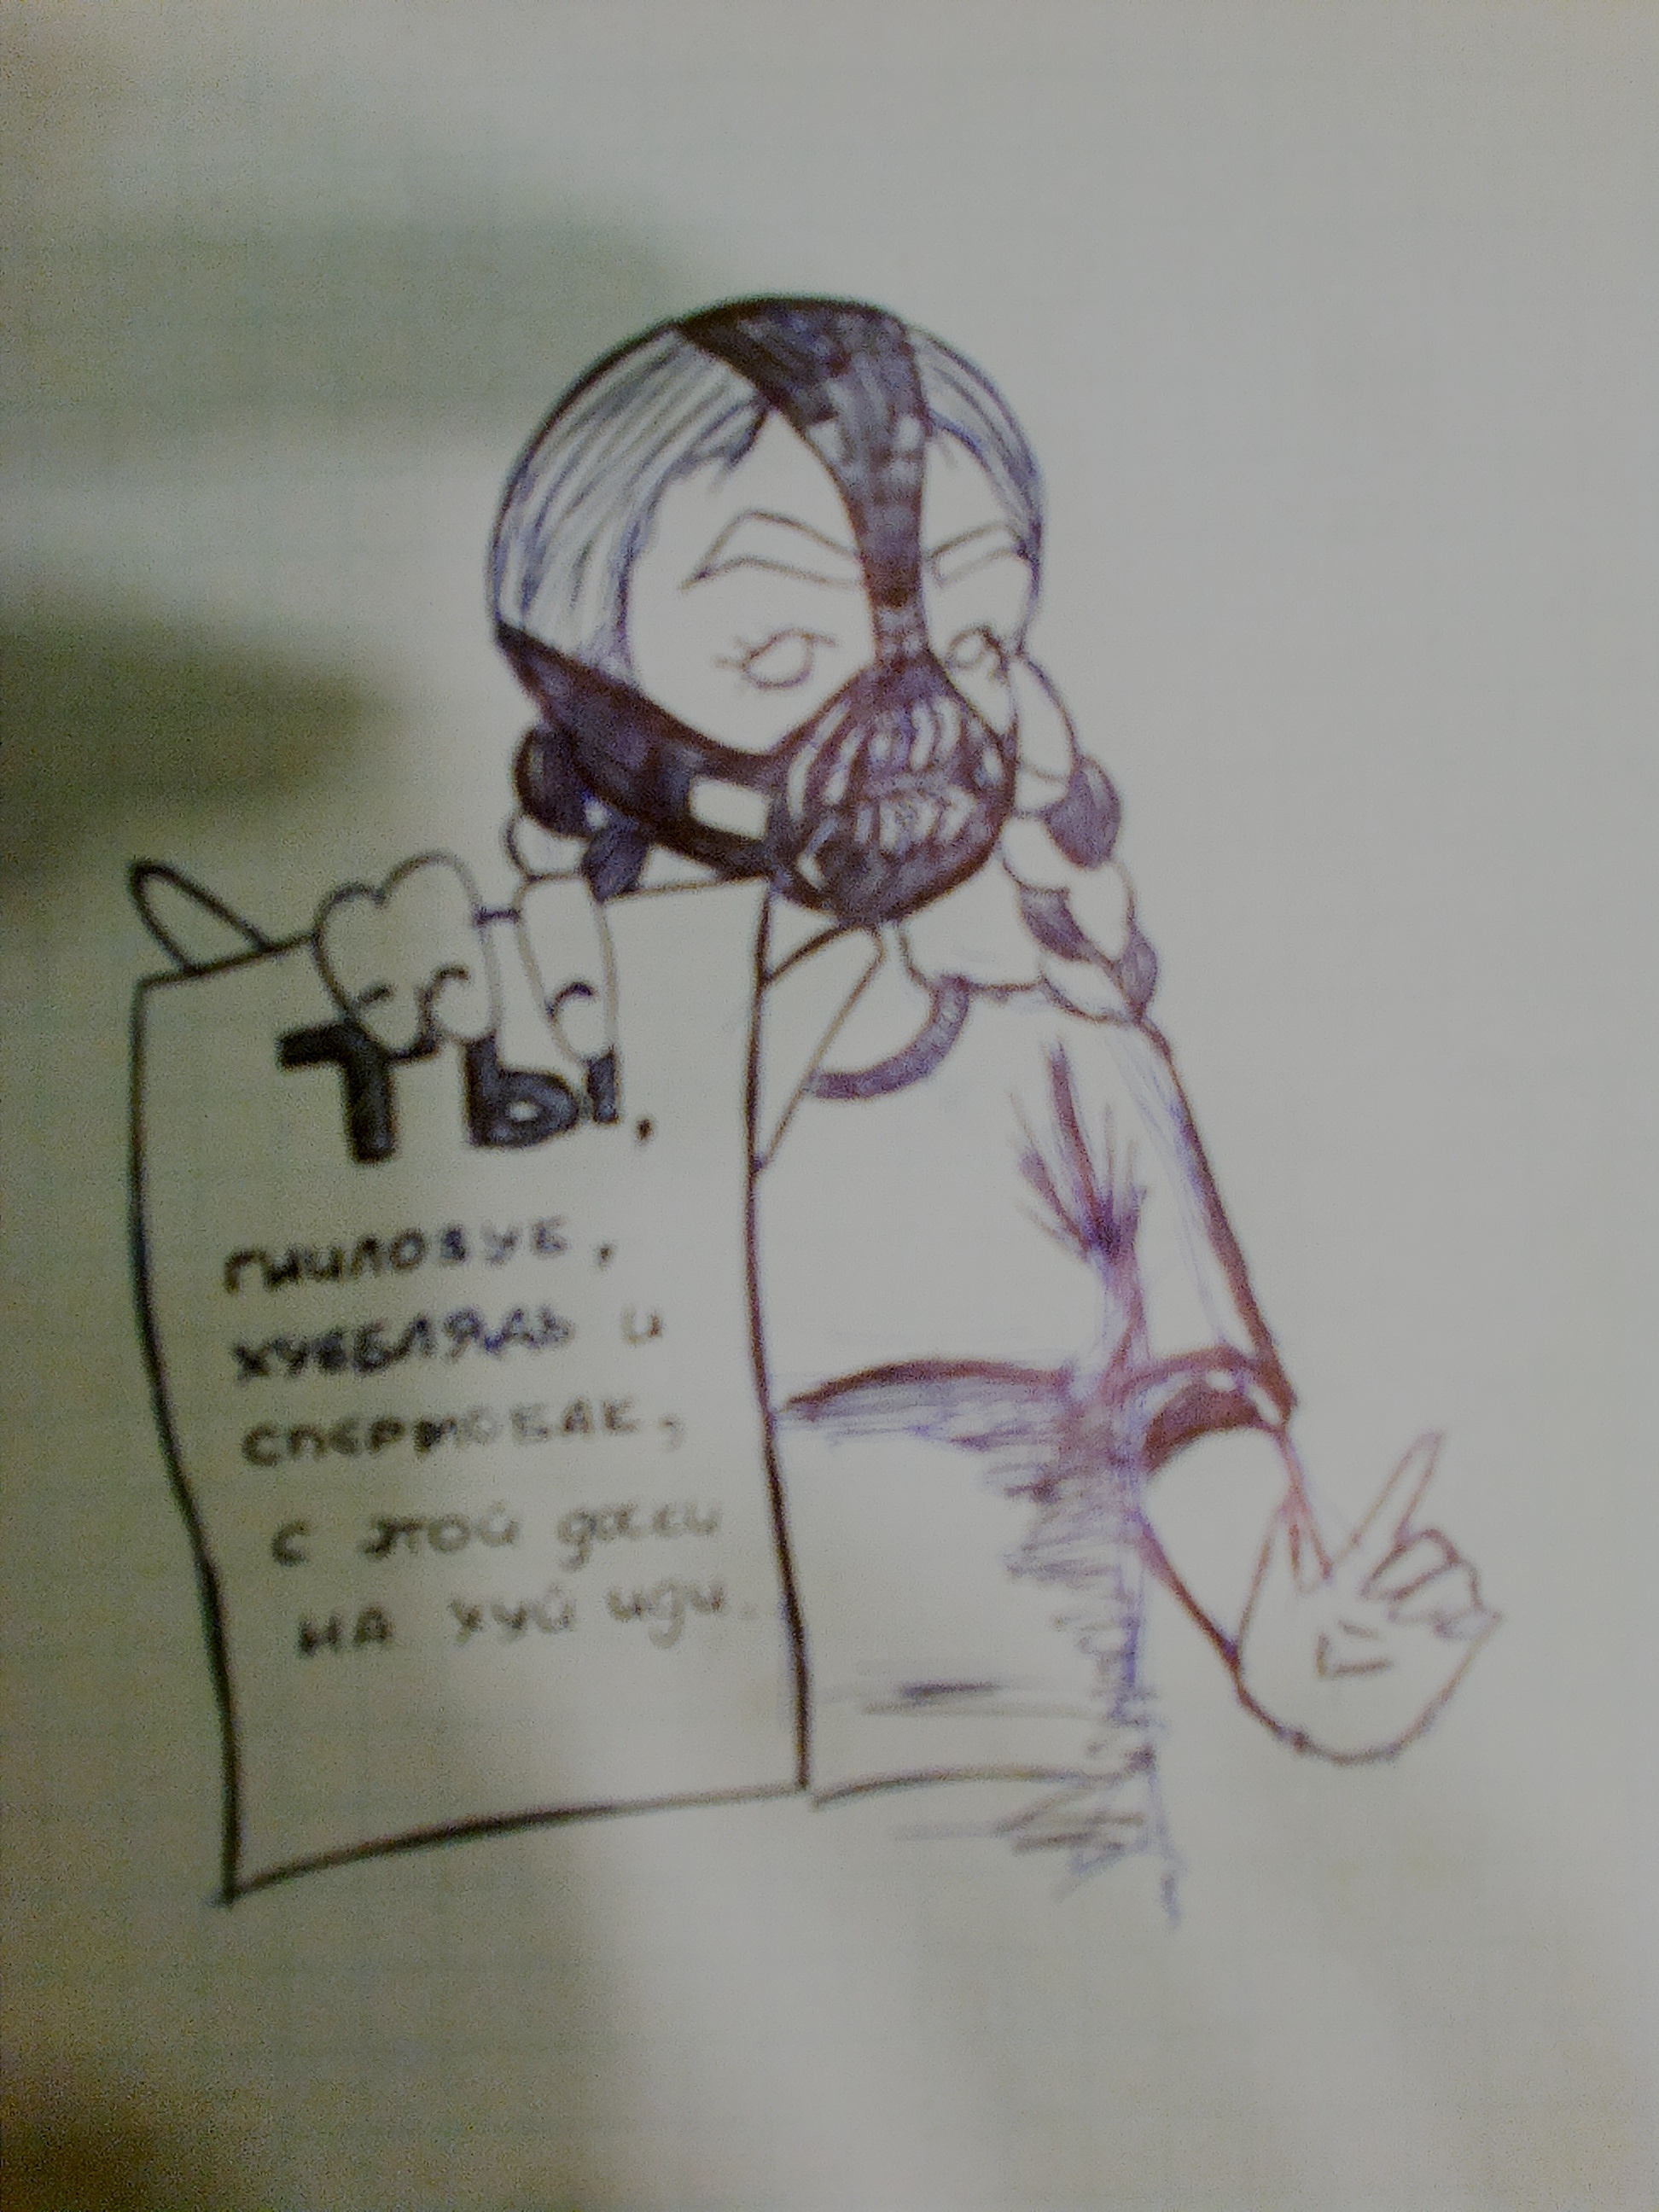 ТЫ,
ГНИЛОЗУБ,
ХУЕБЛЯДЬ и
СПЕРМОБАК,
с этой доски
НА ХУЙ иди.